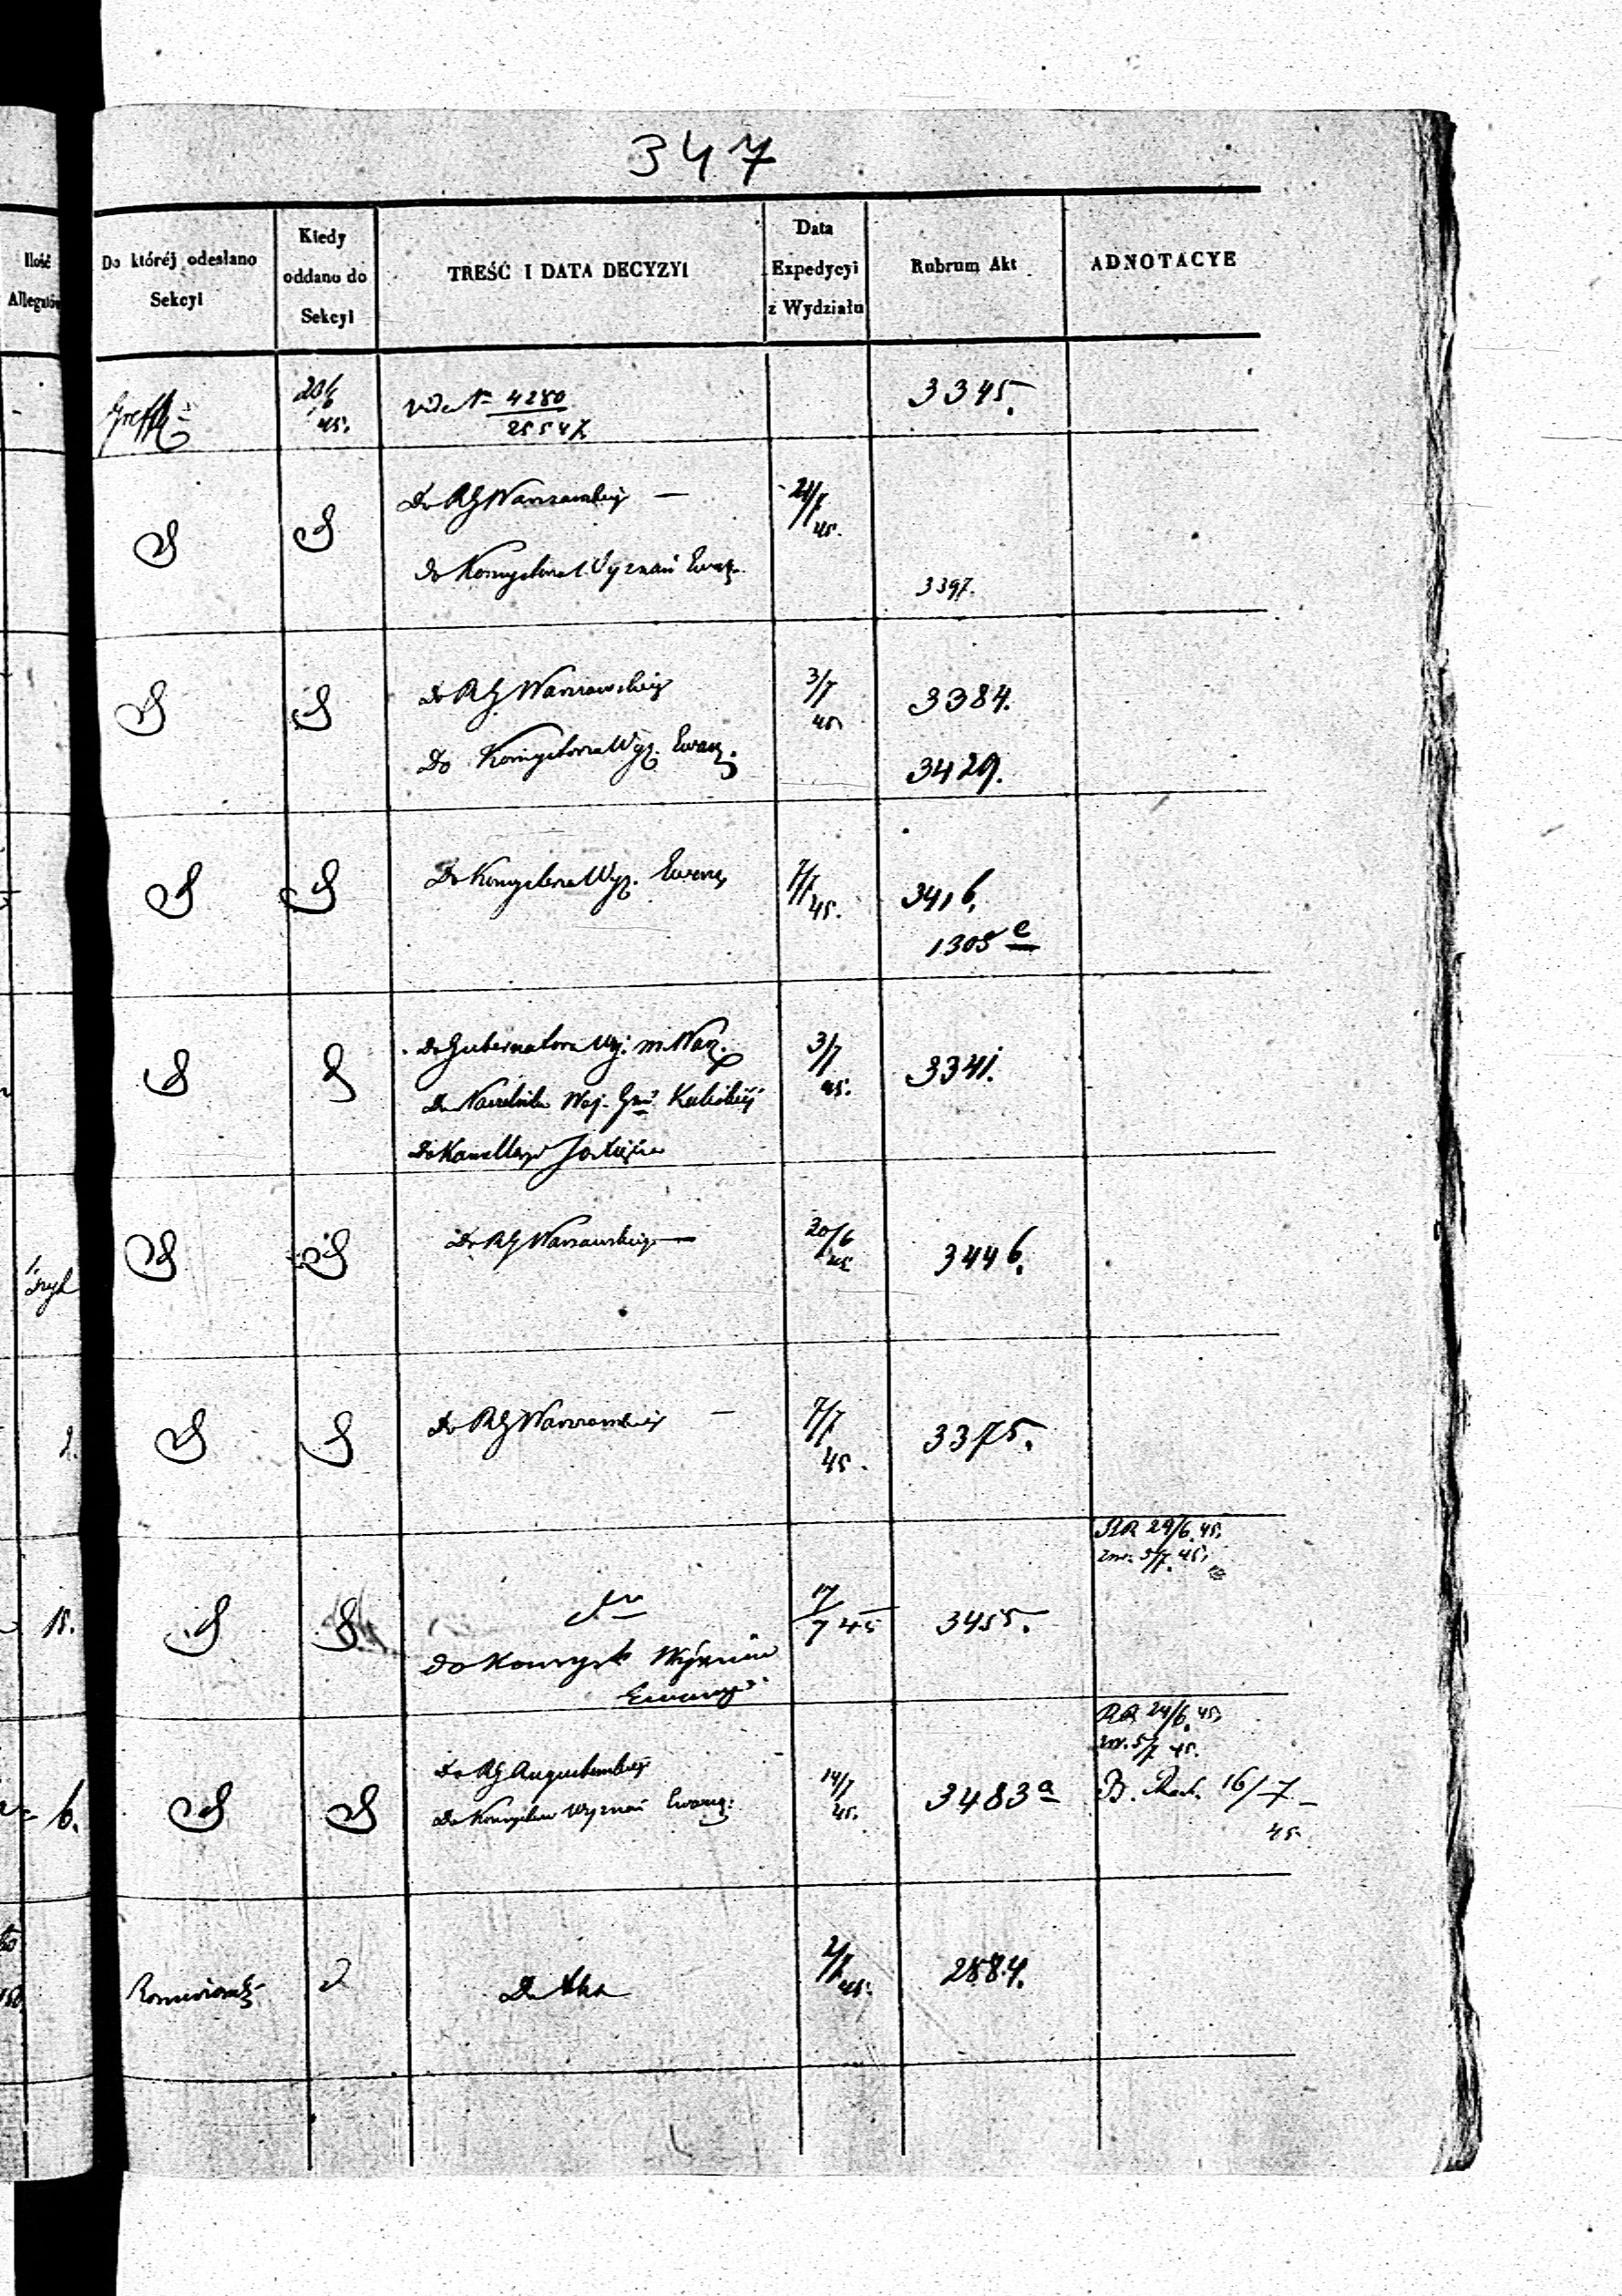 347
Ilość
Allegatów
Do któréj odesłano
Sekcyi
Kiedy
oddano do
Sekcyi
TREŚĆ I DATA DECYZYI
Data
Expedycyi
z Wydziału
Rubrum Akt
ADNOTACYE
20/6
45.
vide N= 4280
3345.
Do RG Warszawskiej —
21/7
45.
Do Konsystorza Wyznań Ewang.
3397.
Do RG Warszawskiej
3/7
45
3384.
Do Konsystorza Wyz. Ewang.
3429.
Do Konsystorza Wyz. Ewang.
7/7
45.
3416.
1305 c
Do Gubernatora Woj. m. Warz.
3/7
45.
3341.
Do Naczelnika Woj. Gu. Kaliskiej
Do Kancellaryi
Do RG Warszawskiej —
30/6
45
3446.
2.
Do RG Warszawskiej —
7/7
45.
3375.
RR 24/6 45.
zw. 5/7 45.
15.
17/7 45
3455.
Do Konsysto Wyznań
Ewang.
RR 24/6 45
zw. 5/7 45.
6.
Do RG Augustowskiej
14/7
45.
3483 a
B. Rach. 16/7
45.
Do Konsystorza Wyznań Ewang:
2/7
45.
2884.
Do Akt